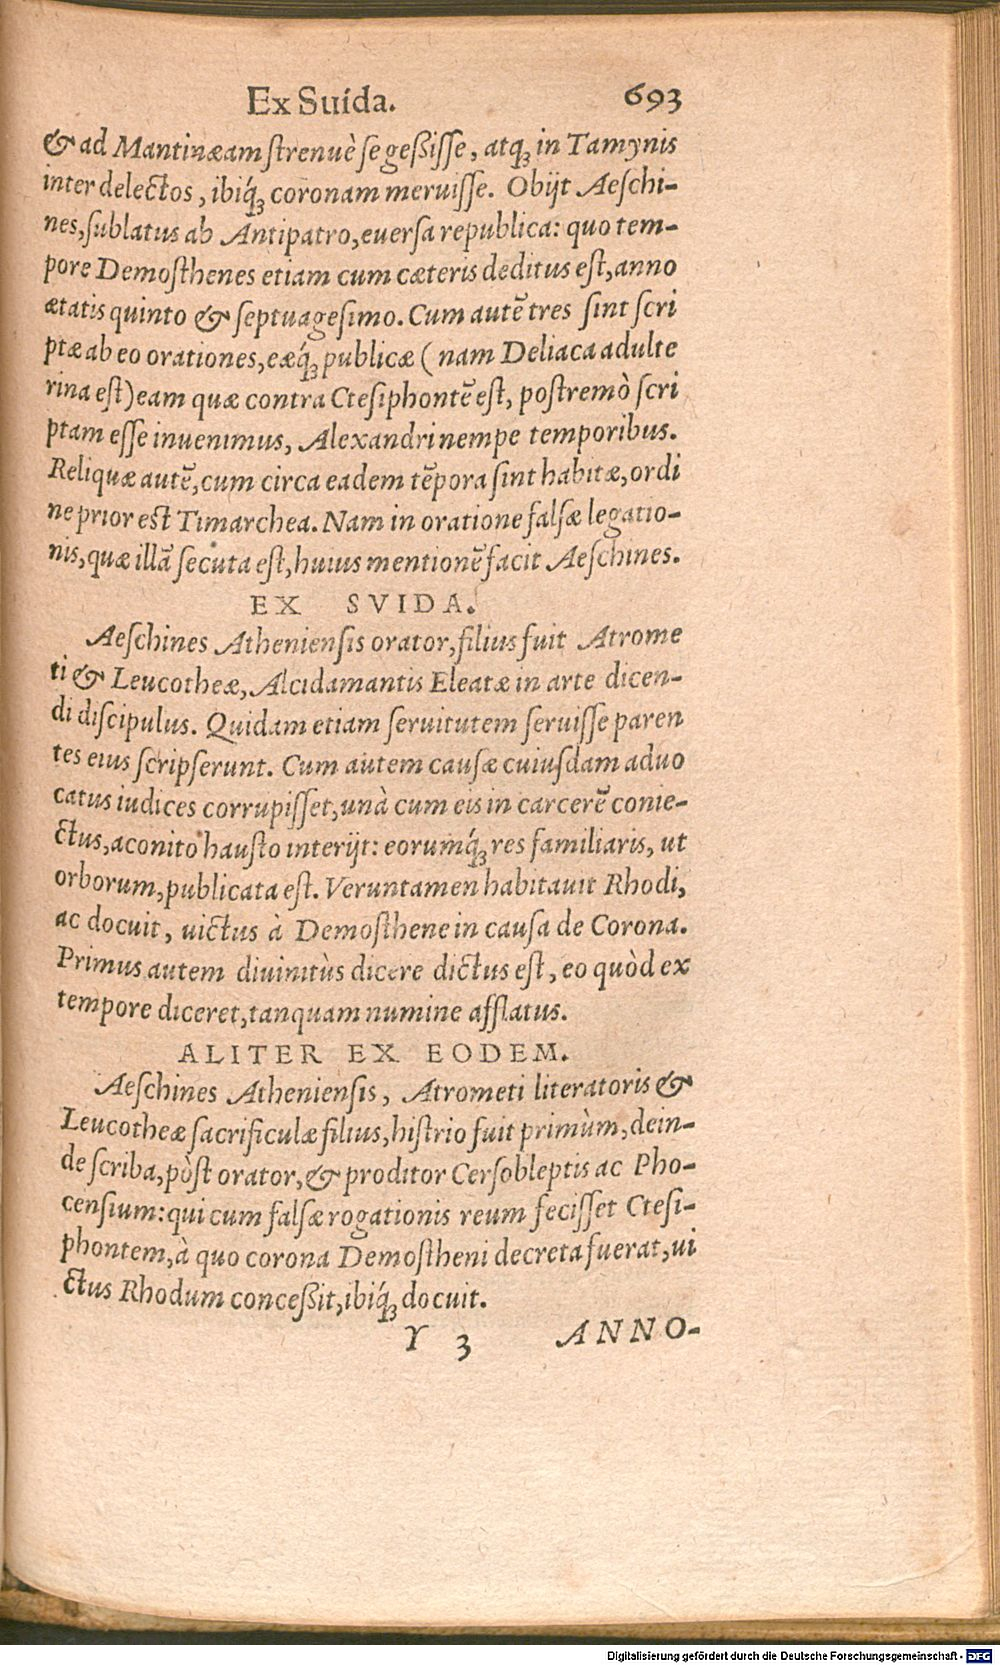 Ex Suida. 693
& ad Mantinæam ſtrenuè ſe geßiſſe, atqꝫ in Tamynis
inter delectos, ibiq́ꝫ coronam meruiſſe. Obijt Aeſchi-
nes, ſublatus ab Antipatro, euerſa republica: quo tem-
pore Demoſthenes etiam cum cæteris deditus eſt, anno
ætatis quinto & ſeptuageſimo. Cum autẽ tres ſint ſcri
ptæ ab eo orationes, eæq́ꝫ publicæ (nam Deliaca adulte
rina eſt) eam quæ contra Cteſiphontẽ eſt, poſtremò ſcri
ptam eſſe inuenimus, Alexandri nempe temporibus.
Reliquæ autẽ, cum circa eadem tẽpora ſint habitæ, ordi
ne prior eſt Timarchea. Nam in oratione falſæ legatio-
nis, quæ illã ſecuta eſt, huius mentionẽ facit Aeſchines.
EX SVIDA.
Aeſchines Athenienſis orator, filius fuit Atrome
ti & Leucotheæ, Alcidamantis Eleatæ in arte dicen-
di diſcipulus. Quidam etiam ſeruitutem ſeruiſſe paren
tes eius ſcripſerunt. Cum autem cauſæ cuiuſdam aduo
catus iudices corrupiſſet, unà cum eis in carcerẽ conie-
ctus, aconito hauſto interijt: eorumq́ꝫ res familiaris, ut
orborum, publicata eſt. Veruntamen habitauit Rhodi,
ac docuit, uictus à Demoſthene in cauſa de Corona.
Primus autem diuinitùs dicere dictus eſt, eo quòd ex
tempore diceret, tanquam numine afflatus.
ALITER EX EODEM.
Aeſchines Athenienſis, Atrometi literatoris &
Leucotheæ ſacrificulæ filius, hiſtrio fuit primùm, dein-
de ſcriba, pòſt orator, & proditor Cerſobleptis ac Pho-
cenſium: qui cum falſæ rogationis reum feciſſet Cteſi-
phontem, à quo corona Demoſtheni decreta fuerat, ui
ctus Rhodum conceßit, ibiq́ꝫ docuit.
Y 3 ANNO-
Digitalisierung gefördert durch die Deutsche Forschungsgemeinschaft - DFG